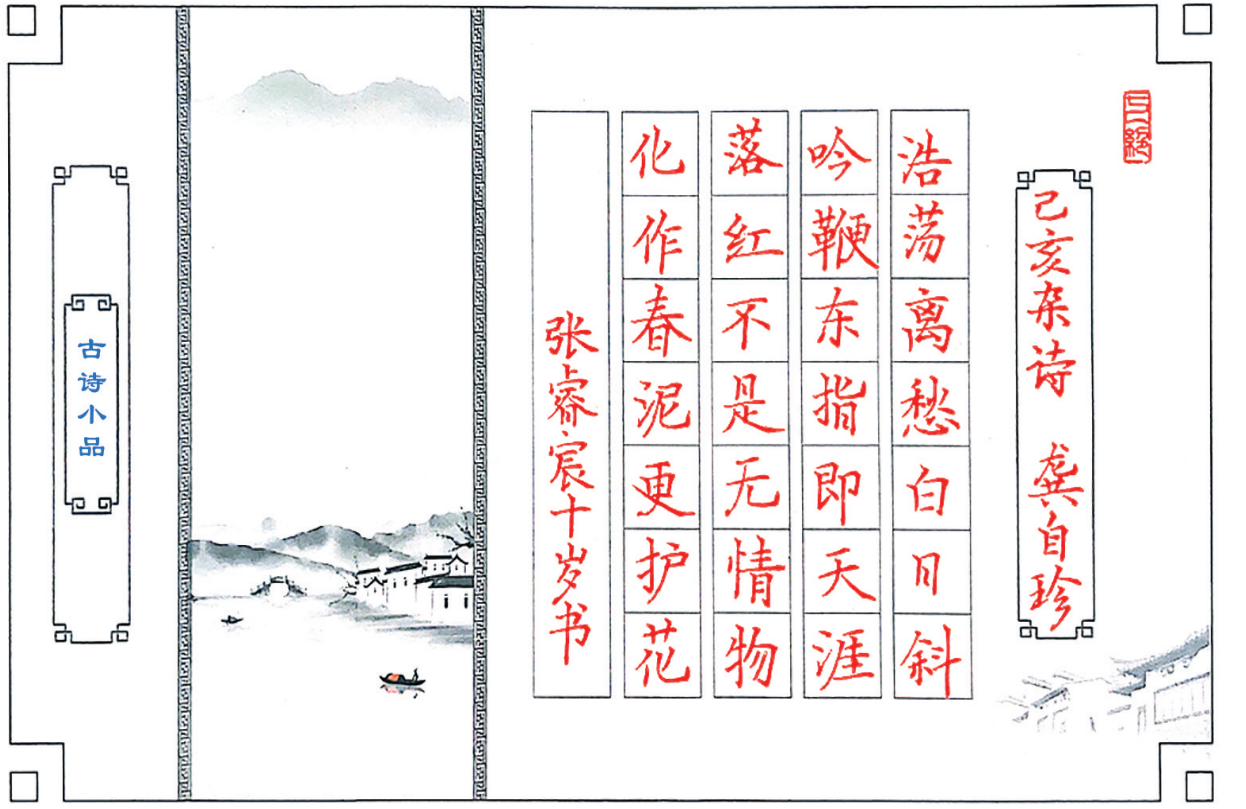 己亥杂诗 龚自珍
浩荡离愁白日斜
吟鞭东指即天涯
落红不是无情物
化作春泥更护花
张睿宸十岁书
古诗小品